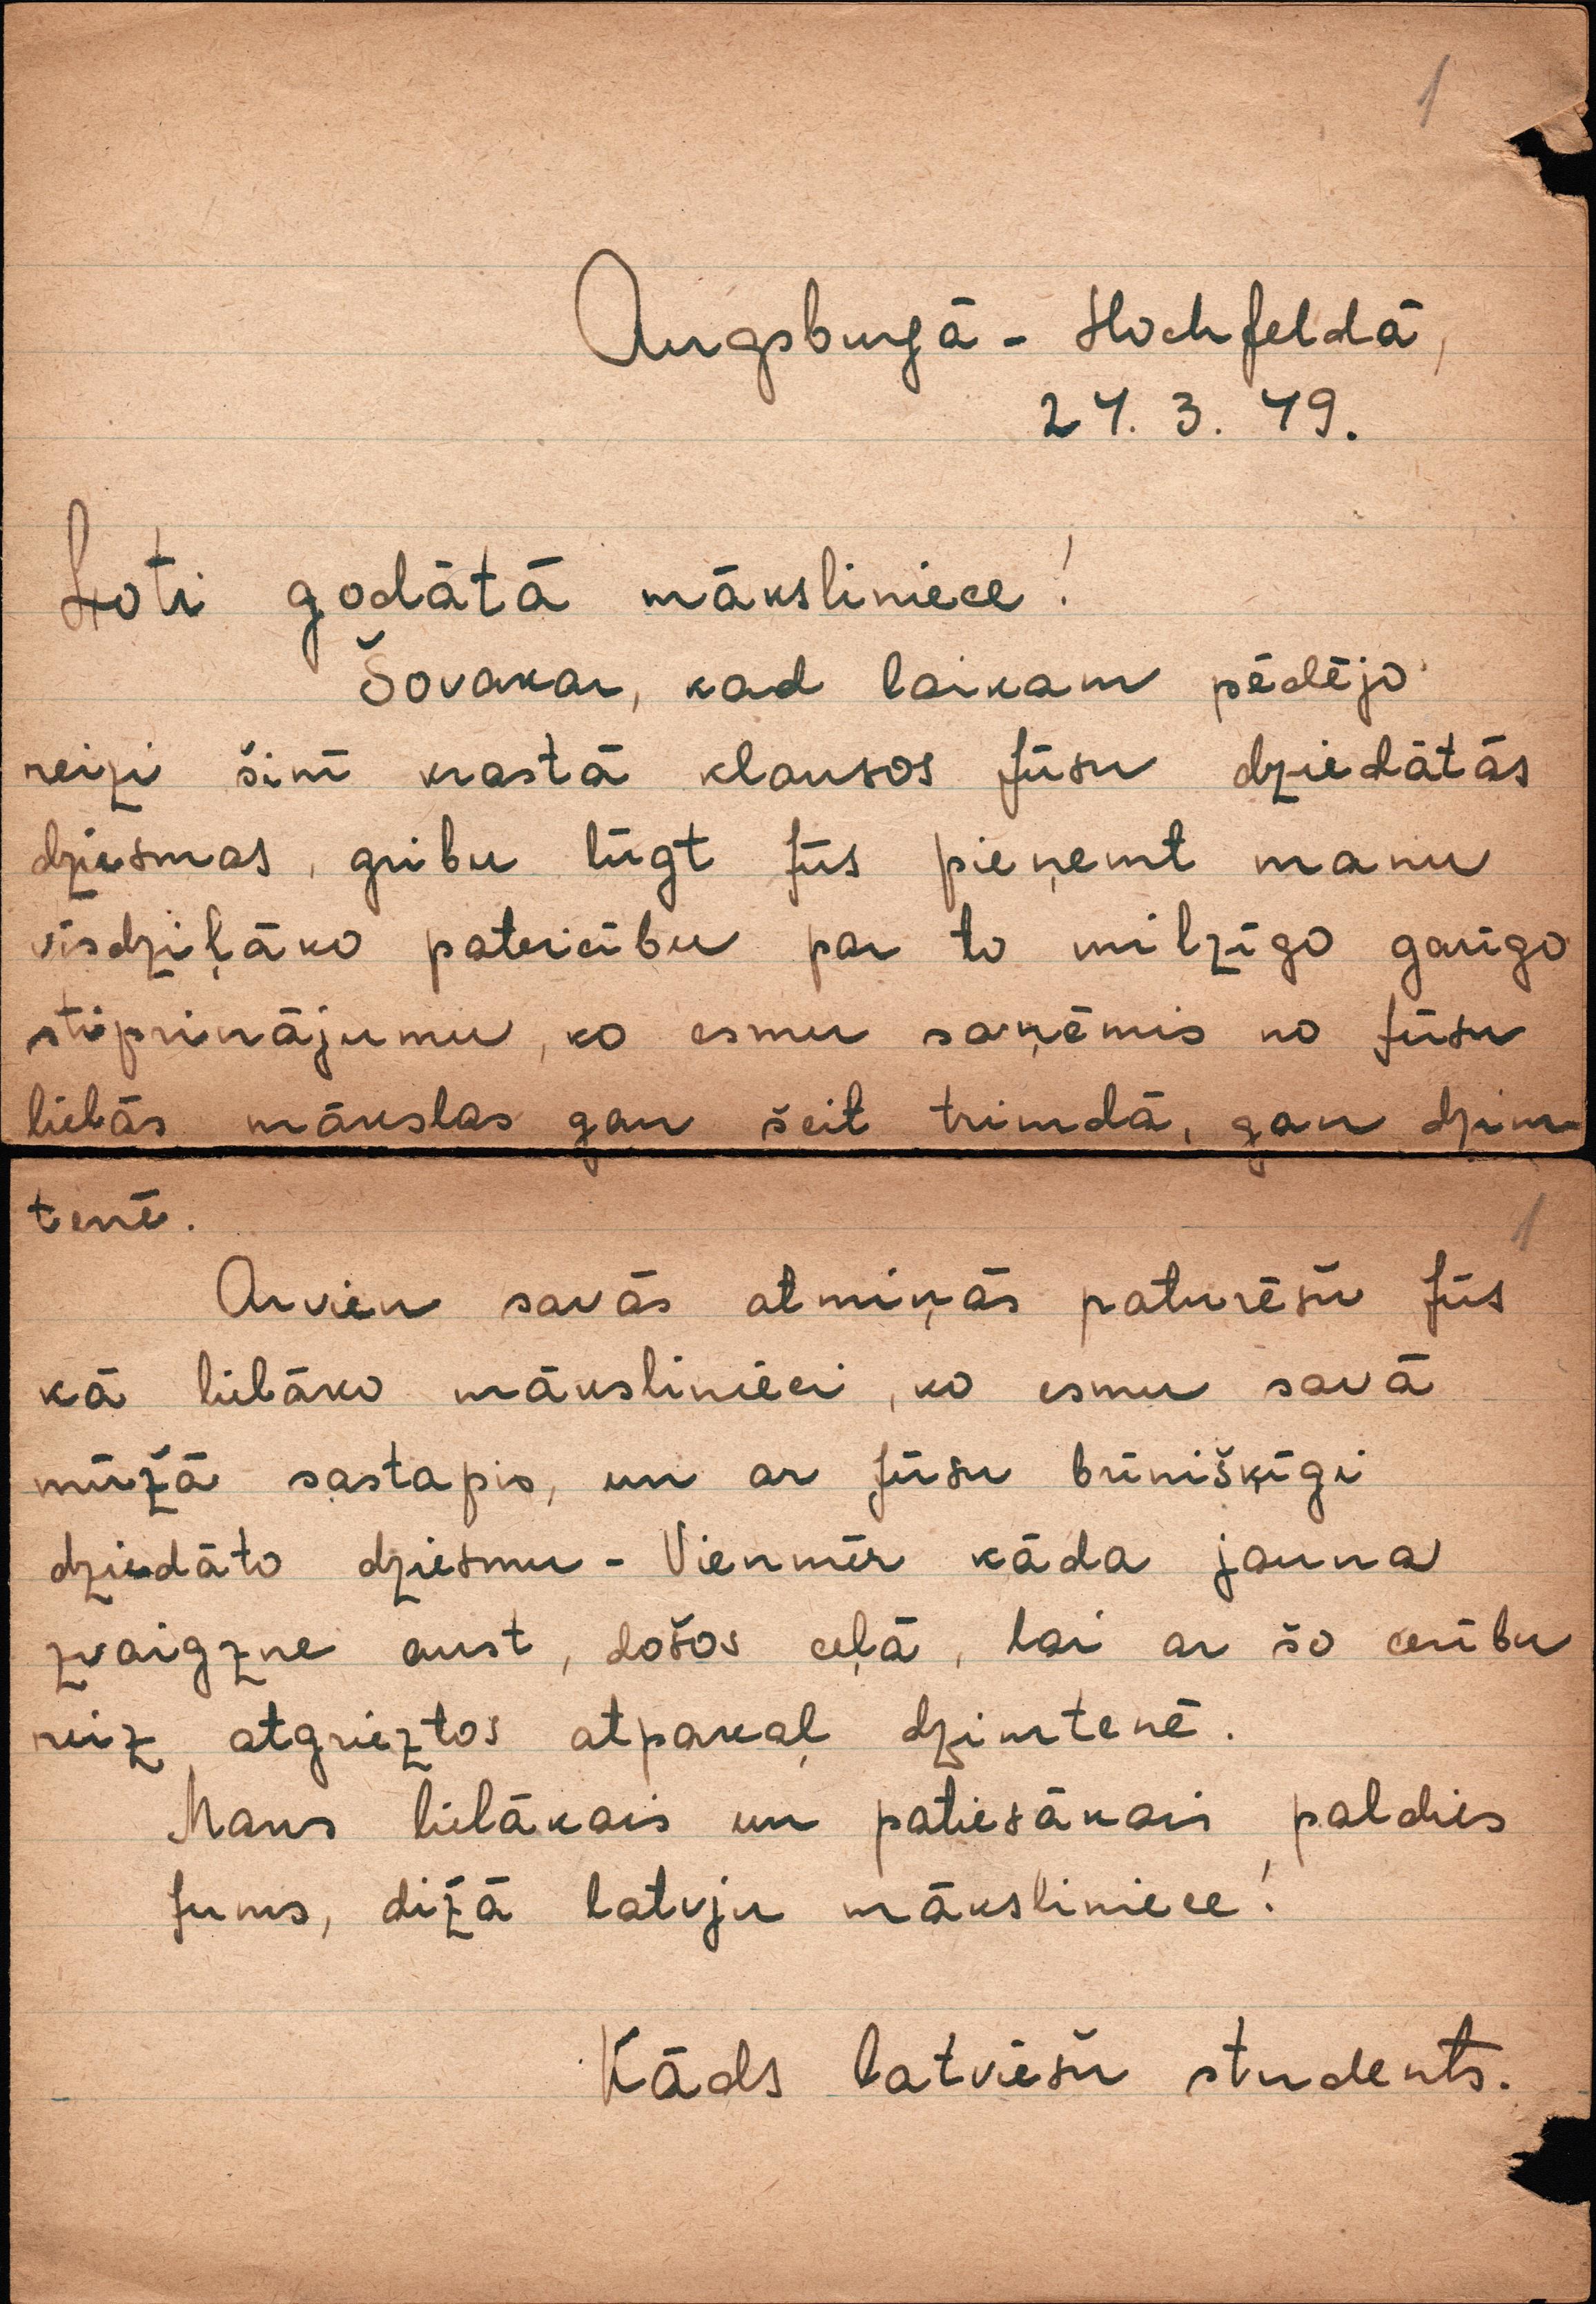 1
Augsburgā - Hochfeldā,
24. 3. 49.
Ļoti godātā māksliniece!
Šovakar, kad laikam pēdējo
reizi šinī krastā klausos Jūsu dziedātās
dziesmas, gribu lūgt Jūs pieņemt manu
visdziļāko pateicību par to milzīgo garīgo
stiprinājumu, ko esmu saņēmis no Jūsu
lielās mākslas gan šeit trimdā, gan dzim-
tenē.
1
Arvien savās atmiņās paturēšu Jūs
kā lielāko mākslinieci, ko esmu savā
mūžā sastapis, un ar Jūsu brīnišķīgi
dziedāto dziesmu - Vienmēr kāda jauna
zvaigzne aust, došos ceļā, lai ar šo cerību
reiz atgrieztos atpakaļ dzimtenē.
Mans lielākais un patiesākais paldies
Jums, dižā latvju māksliniece!
Kāds latviešu students.